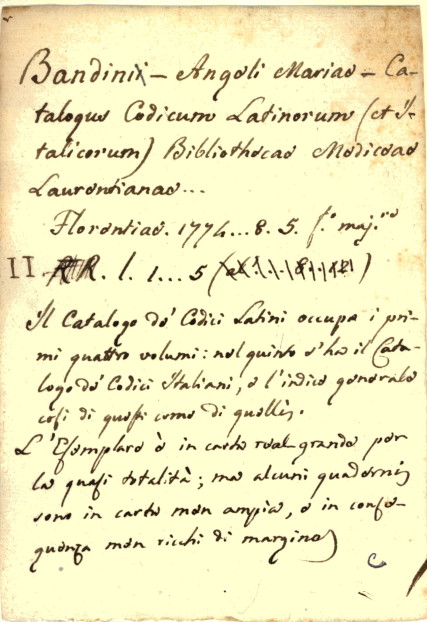 Bandini – Angeli Mariae – Ca-
talogus Codicum Latinorum (et I-
talicorum) Bibliothecae Mediceae
Laurentianae...
Florentiae. 1774... 8. 5. f.º maj.re
II. R. l. 1... 5
Il Catalogo de' Codici Latini occupa i pri-
mi quattro volumi: nel quinto s'ha il Cata-
logo de' Codici Italiani, e l'indice generale
cosi di questi come di quelli.
L'Esemplare è in carta real grande per
la quasi totalità; ma alcuni quaderni
sono in carta men ampia, e in conse-
guenza men ricchi di margine)